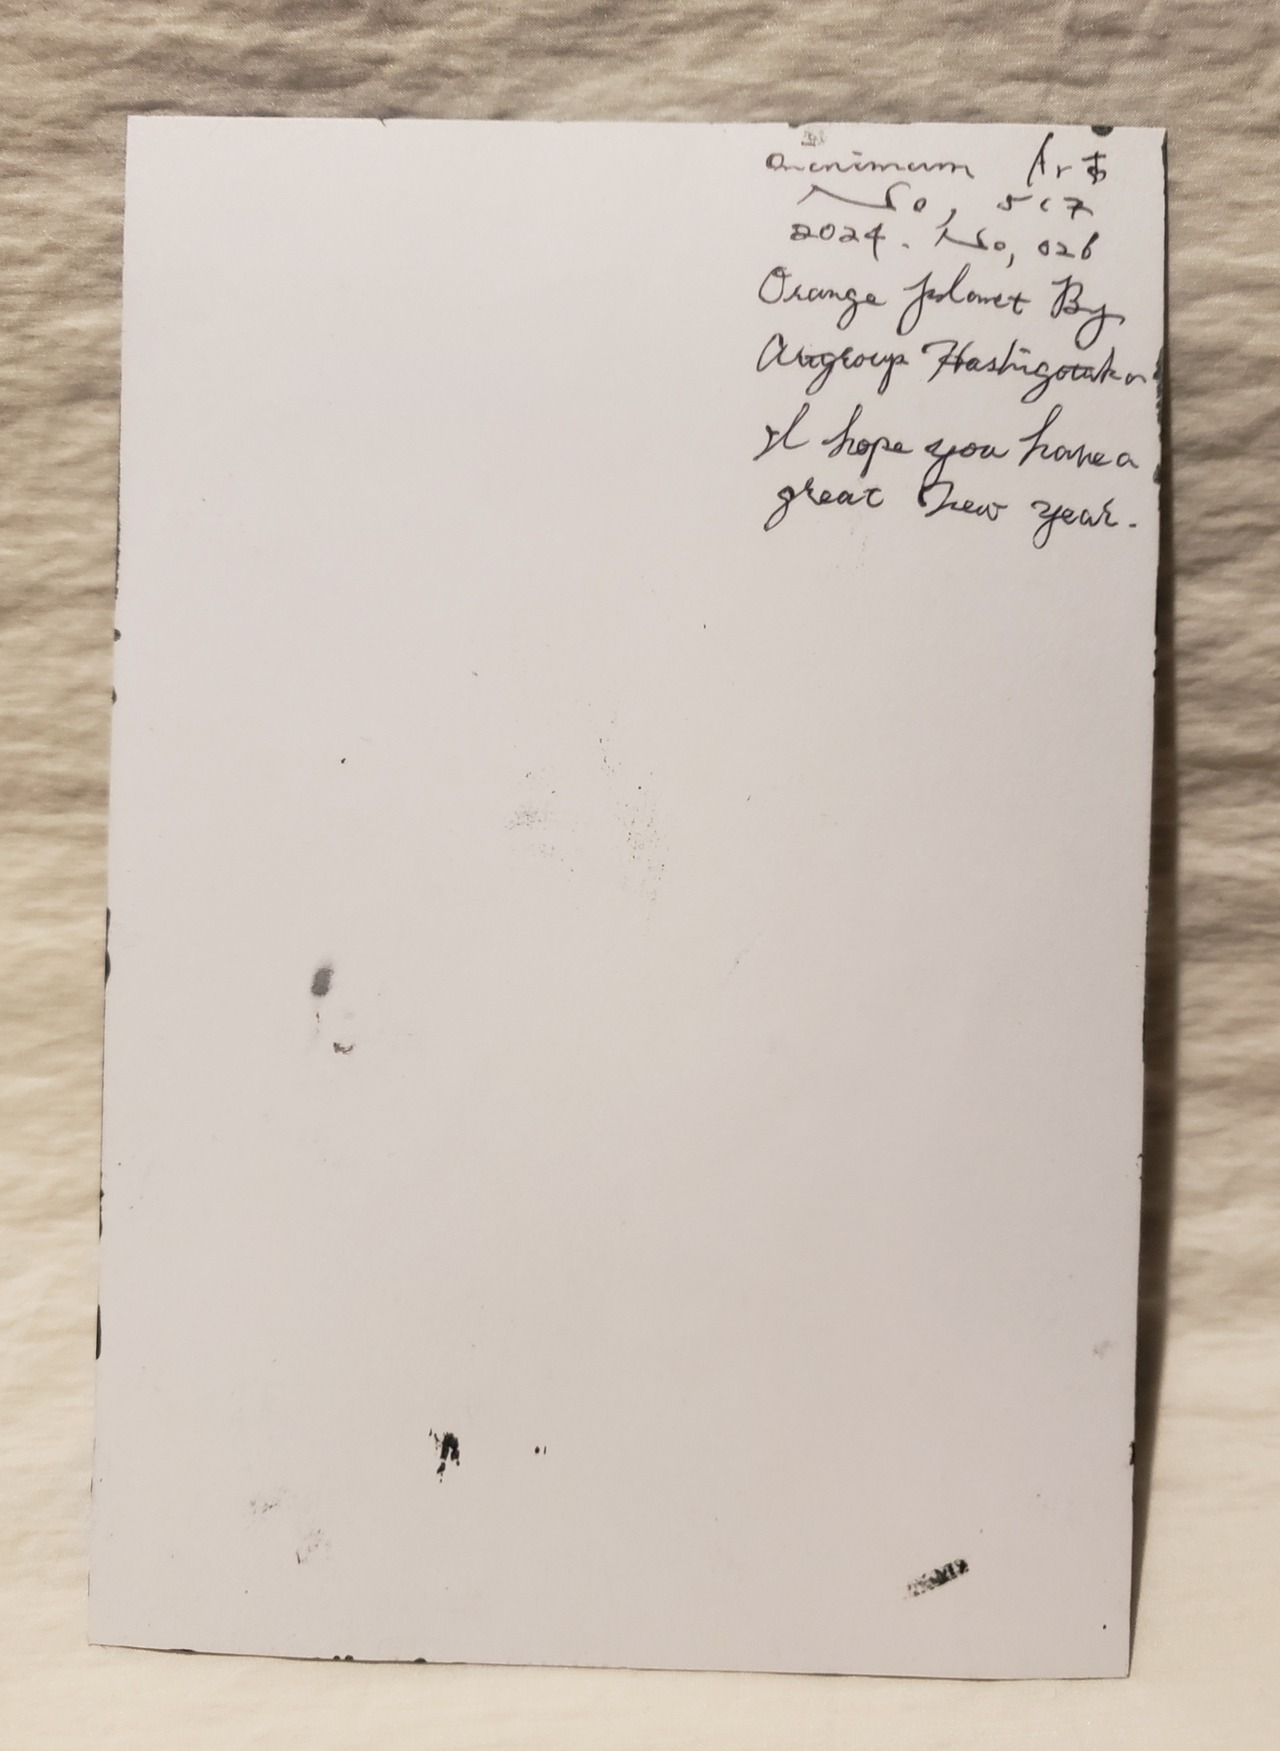 minimum Art
No, 517
2024. No, 026
Orange planet By
Artgroup Hashigotakar
I hope you have a
great New year.